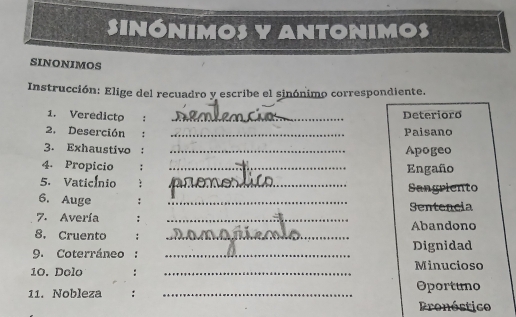 SINÓNIMOS Y ANTONIMOS
SINONIMOS
Instrucción: Elige del recuadro y escribe el sinónimo correspondiente.
1. Veredicto : sentencia
2. Deserción :
3. Exhaustivo :
4. Propicio :
5. Vaticinio : pronostico
6. Auge :
7. Avería :
8. Cruento : sangriento
9. Coterráneo :
10. Dolo :
11. Nobleza :
Deterioro
Paisano
Apogeo
Engaño
Sangriento
Sentencia
Abandono
Dignidad
Minucioso
Oportuno
Pronóstico